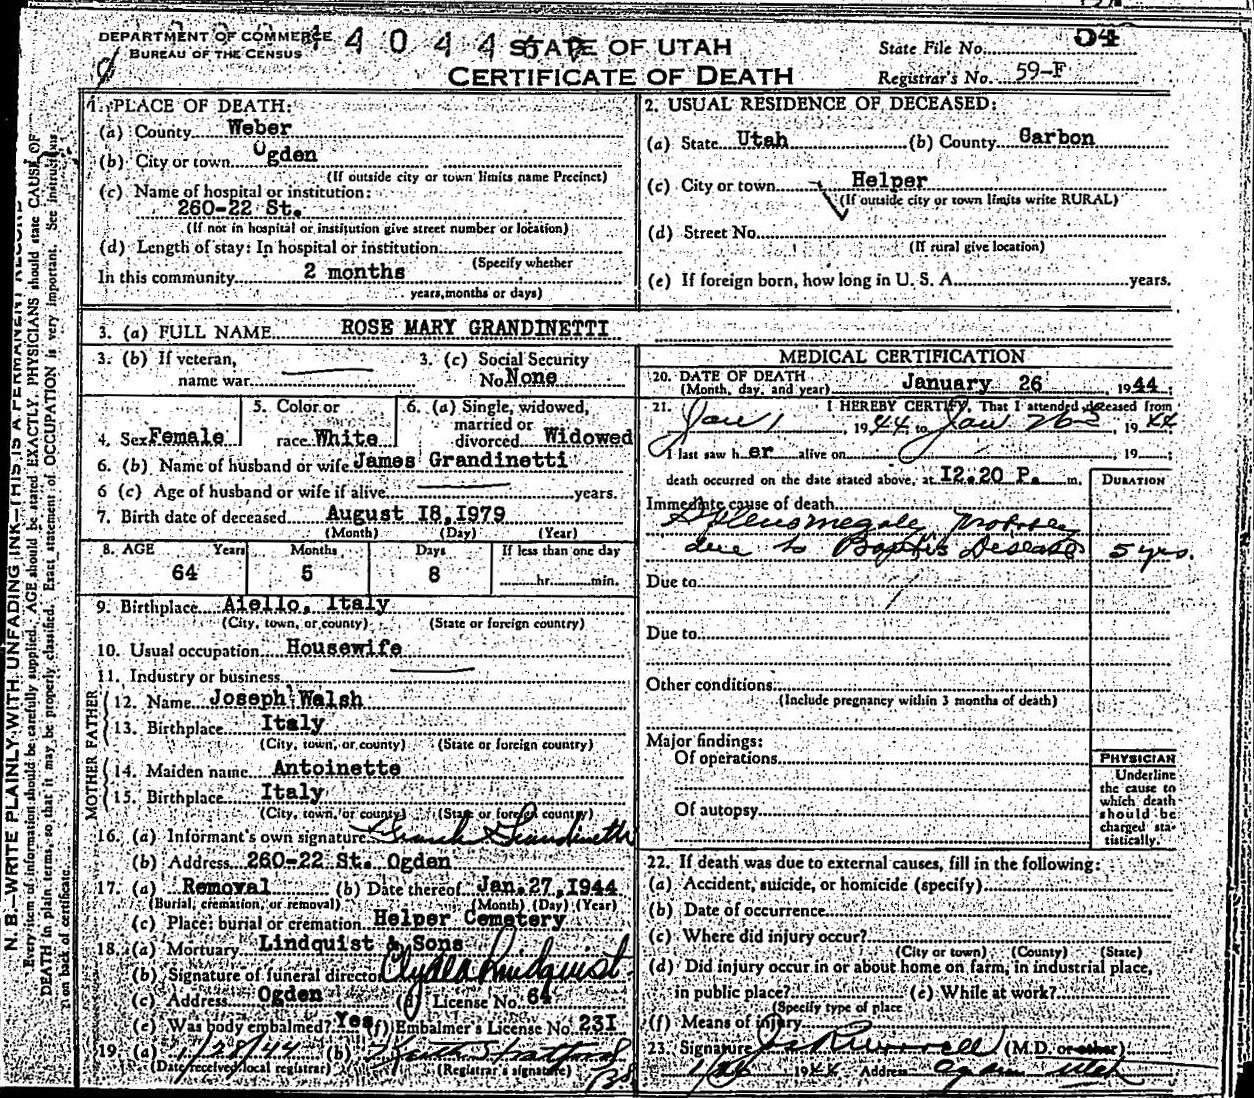 DEPARTMENT OF COMMERCE
BUREAU OF THE CENSUS
STATE OF UTAH
CERTIFICATE OF DEATH
State File No. 54
Registrar's No. 59-F
1. PLACE OF DEATH:
(a) County Weber
(b) City or town Ogden
(If outside city or town limits name Precinct)
(c) Name of hospital or institution:
260-22 St.
(If not in hospital or institution give street number or location)
(d) Length of stay: In hospital or institution
(Specify whether
In this community 2 months
years, months or days)
2. USUAL RESIDENCE OF DECEASED:
(a) State Utah (b) County Carbon
(c) City or town Helper
(If outside city or town limits write RURAL)
(d) Street No.
(If rural give location)
(e) If foreign born, how long in U. S. A. years.
3. (a) FULL NAME ROSE MARY GRANDINETTI
3. (b) If veteran, name war
3. (c) Social Security No. None
4. Sex Female
5. Color or race White
6. (a) Single, widowed, married or divorced Widowed
6. (b) Name of husband or wife James Grandinetti
6 (c) Age of husband or wife if alive years.
7. Birth date of deceased August 18, 1979
(Month) (Day) (Year)
8. AGE Years Months Days If less than one day
64 5 8 hr. min.
9. Birthplace Aiello, Italy
(City, town, or county) (State or foreign country)
10. Usual occupation Housewife
11. Industry or business
FATHER
12. Name Joseph Welsh
13. Birthplace Italy
(City, town, or county) (State or foreign country)
MOTHER
14. Maiden name Antoinette
15. Birthplace Italy
(City, town, or county) (State or foreign country)
16. (a) Informant's own signature Frank Grandinetti
(b) Address 260-22 St. Ogden
17. (a) Removal (b) Date thereof Jan. 27, 1944
(Burial, cremation, or removal) (Month) (Day) (Year)
(c) Place: burial or cremation Helper Cemetery
18. (a) Mortuary Lindquist & Sons
(b) Signature of funeral director Clyde Lindquist
(c) Address Ogden (d) License No. 64
(e) Was body embalmed? Yes (f) Embalmer's License No. 231
19. (a) 1/28/44 (b) Keith Stratford
(Date received local registrar) (Registrar's signature)
MEDICAL CERTIFICATION
20. DATE OF DEATH
(Month, day, and year) January 26, 1944
21. I HEREBY CERTIFY, That I attended deceased from
Jan 1, 1944 to Jan 26, 1944
I last saw her alive on , 19 ;
death occurred on the date stated above, at 12:20 P. m.
DURATION
Immediate cause of death
Splenomegaly probably
due to Bantis Disease 5 yrs.
Due to
Due to
Other conditions:
(Include pregnancy within 3 months of death)
Major findings:
Of operations
Of autopsy
PHYSICIAN
Underline the cause to which death should be charged statistically.
22. If death was due to external causes, fill in the following:
(a) Accident, suicide, or homicide (specify)
(b) Date of occurrence
(c) Where did injury occur?
(City or town) (County) (State)
(d) Did injury occur in or about home on farm, in industrial place,
in public place? (e) While at work?
(Specify type of place
(f) Means of injury
23. Signature (M.D. or other)
1/26 1944 Address Ogden Utah
N. B.—WRITE PLAINLY WITH UNFADING INK—THIS IS A PERMANENT RECORD
Every item of information should be carefully supplied. AGE should be stated EXACTLY. PHYSICIANS should state CAUSE OF
DEATH in plain terms, so that it may be properly classified. Exact statement of OCCUPATION is very important. See instructions
on back of certificate.